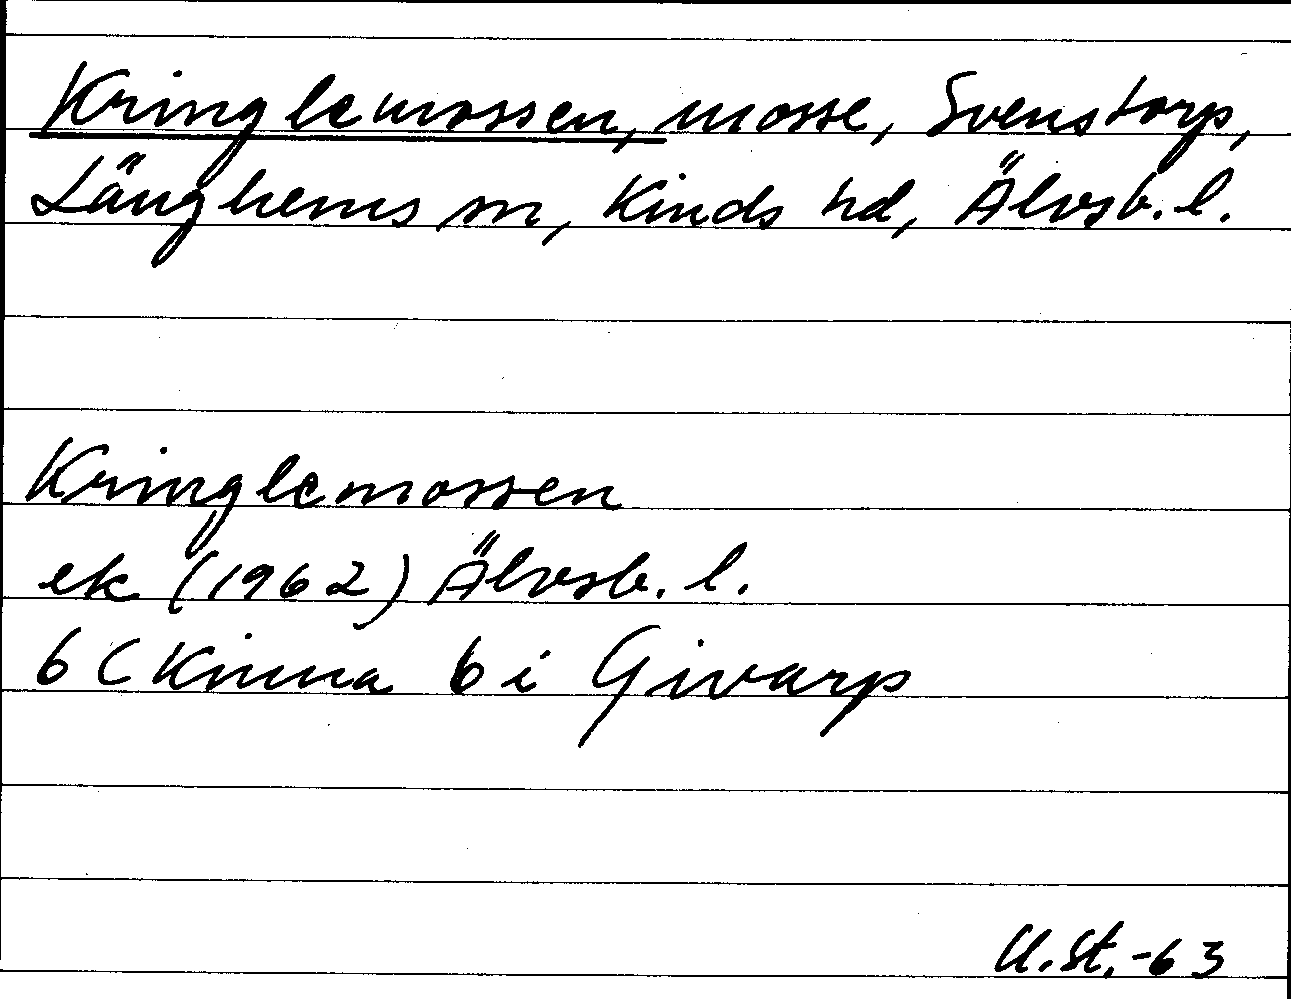 Kringlemossen, mosse, Svenstorp,
Länghems sn, Kinds hd, Älvsb. l.
Kringlemossen
ek (1962) Älvsb. l.
6 C Kinna 6 i Givarp
U. St. -63